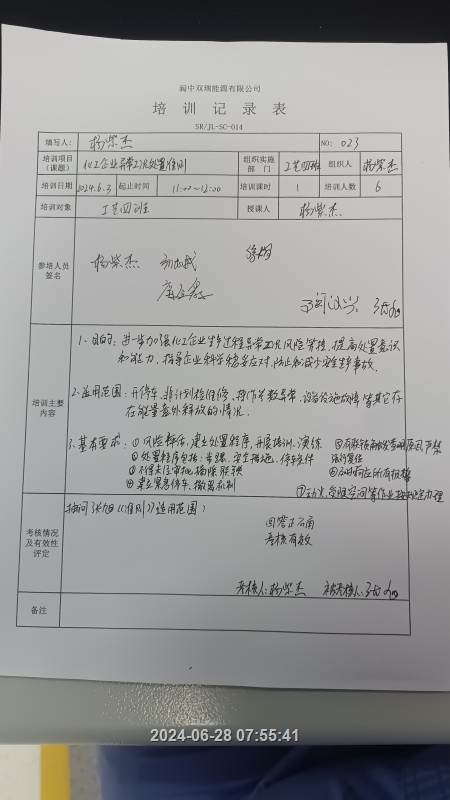 阆中双瑞能源有限公司
培训记录表
SR/JL-SC-014
填写人: 杨紫杰 NO: 023
培训项目(课题) 化工企业异常工况处置准则 组织实施部门 工艺四班 组织人 杨紫杰
培训日期 2024.6.3 起止时间 11:00~12:00 培训课时 1 培训人数 6
培训对象 工艺四班 授课人 杨紫杰
参培人员签名
杨紫杰
培训主要内容
1、目的: 进步加强化工企业生产过程异常工况风险管控, 提高处置意识
和能力, 指导企业科学稳妥应对, 防止和减少安全生产事故.
2、适用范围: 开停车、非计划检维修、操作参数异常、设备设施故障等其它存
在能量意外释放的情况.
3、基本要求: ①风险辩估, 建立处置程序, 开展培训、演练
②处置程序包括: 步骤、安全措施、停车条件
③不得未经审批摘除联锁
④建立紧急停车、撤离机制
⑤有联锁触发查明原因, 严禁
强行复位
⑥及时响应所有报警
⑦动火、受限空间等作业按规定办理
考核情况及有效性评定
《准则》适用范围:
回答正确
考核有效
考核人: 杨紫杰 被考核人:
备注
2024-06-28 07:55:41